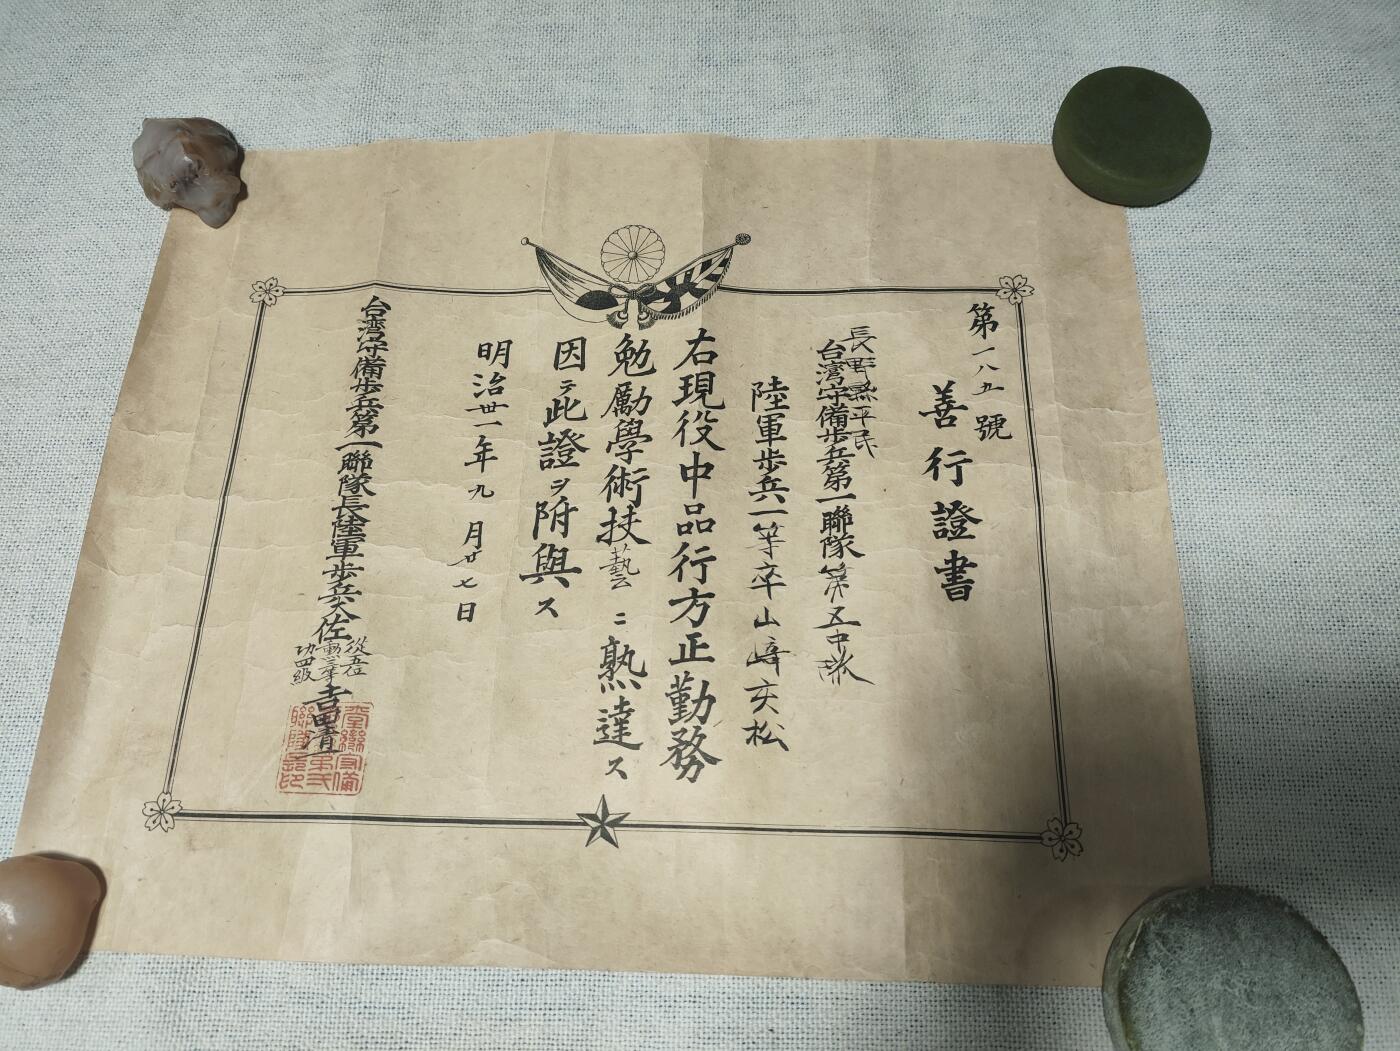 第一八五號
善行證書
長野縣平民
台湾守備歩兵第一聯隊第五中隊
陸軍歩兵一等卒山﨑亥松
右現役中品行方正勤務
勉勵學術技藝ニ熟達ス
因テ此證ヲ附與ス
明治卅一年九月廿七日
台湾守備歩兵第一聯隊長陸軍歩兵大佐
從五位
勳三等
功四級
吉田清